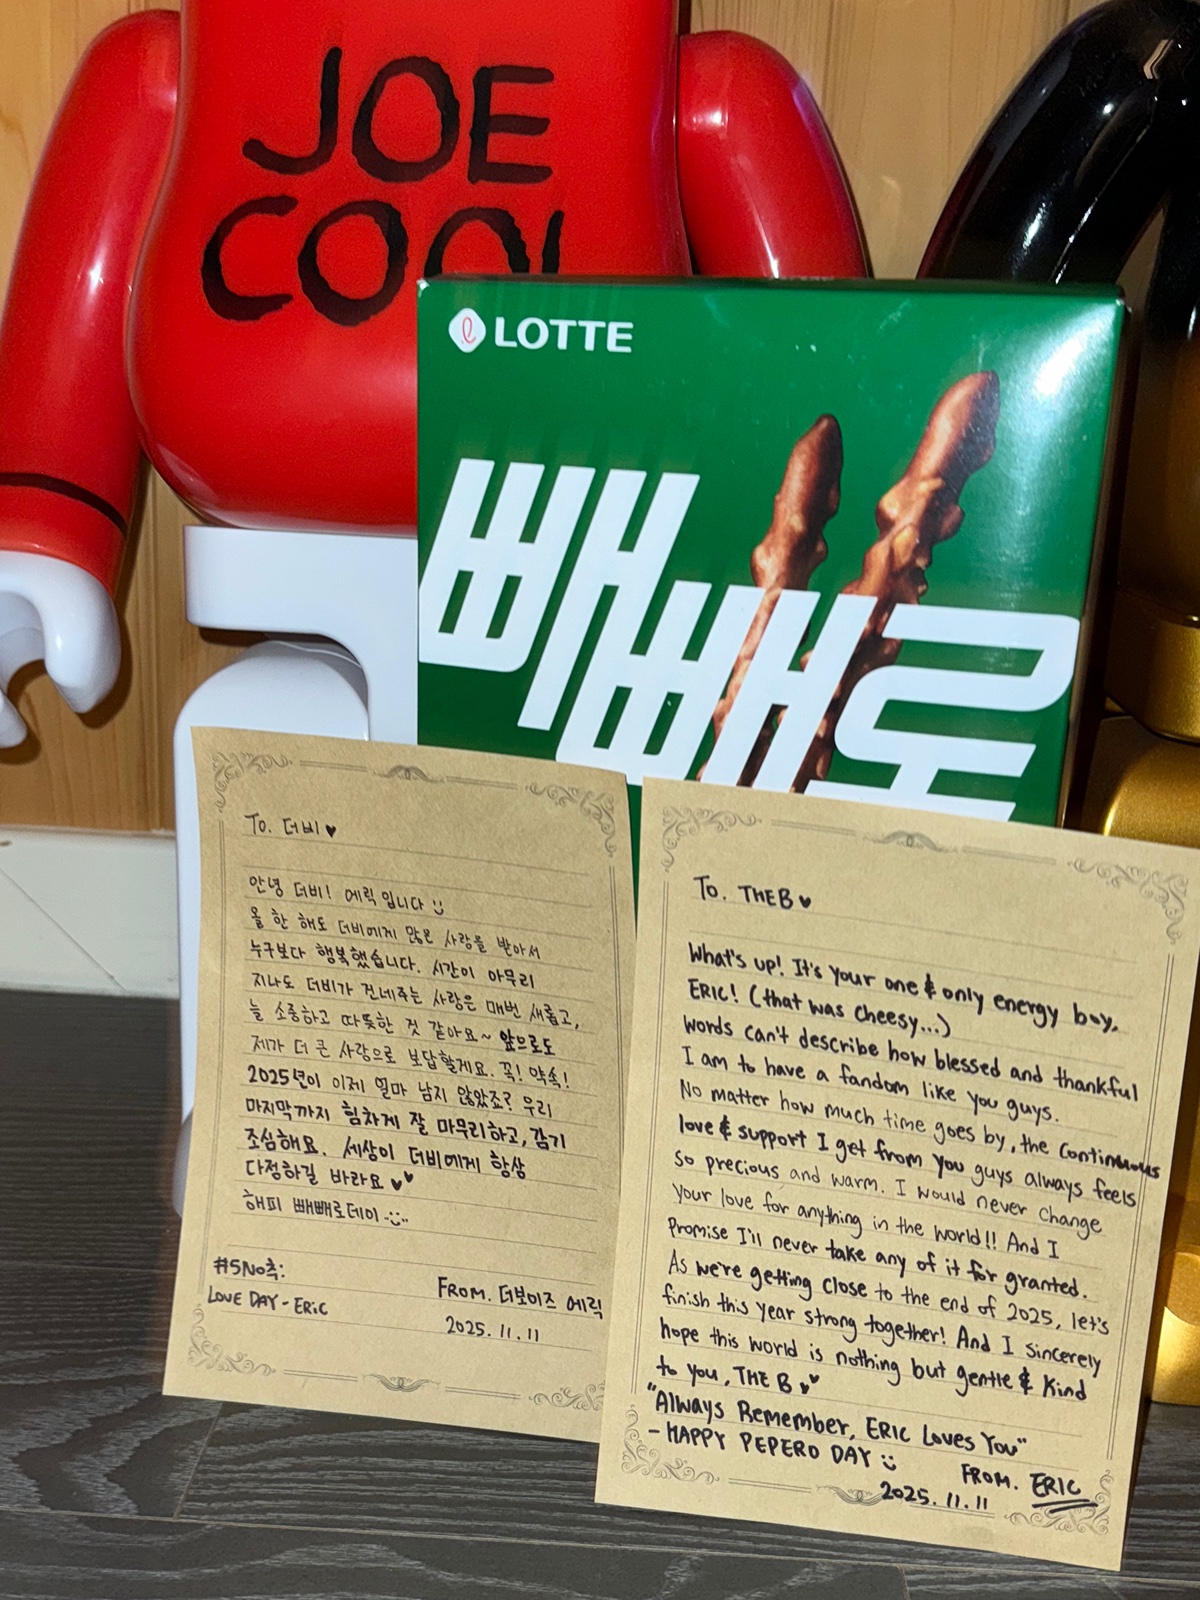 JOE
COOL
LOTTE
빼빼로
To. 더비♥
안녕 더비! 에릭입니다 :)
올 한 해도 더비에게 많은 사랑을 받아서
누구보다 행복했습니다. 시간이 아무리
지나도 더비가 건네주는 사랑은 매번 새롭고,
늘 소중하고 따뜻한 것 같아요~ 앞으로도
제가 더 큰 사랑으로 보답할게요. 꼭! 약속!
2025년이 이제 얼마 남지 않았죠? 우리
마지막까지 힘차게 잘 마무리하고, 감기
조심해요. 세상이 더비에게 항상
다정하길 바라요 ♥♥
해피 빼빼로데이 :)
#5No축:
LOVE DAY - ERIC
FROM. 더보이즈 에릭
2025. 11. 11
To. THEB♥
What's up! It's your one & only energy boy,
ERIC! (that was cheesy...)
words can't describe how blessed and thankful
I am to have a fandom like you guys.
No matter how much time goes by, the continuous
love & support I get from you guys always feels
so precious and warm. I would never change
your love for anything in the world!! And I
promise I'll never take any of it for granted.
As we're getting close to the end of 2025, let's
finish this year strong together! And I sincerely
hope this world is nothing but gentle & kind
to you, THE B ♥♥
"Always Remember, ERIC Loves You"
- HAPPY PEPERO DAY :)
FROM. ERIC
2025. 11. 11